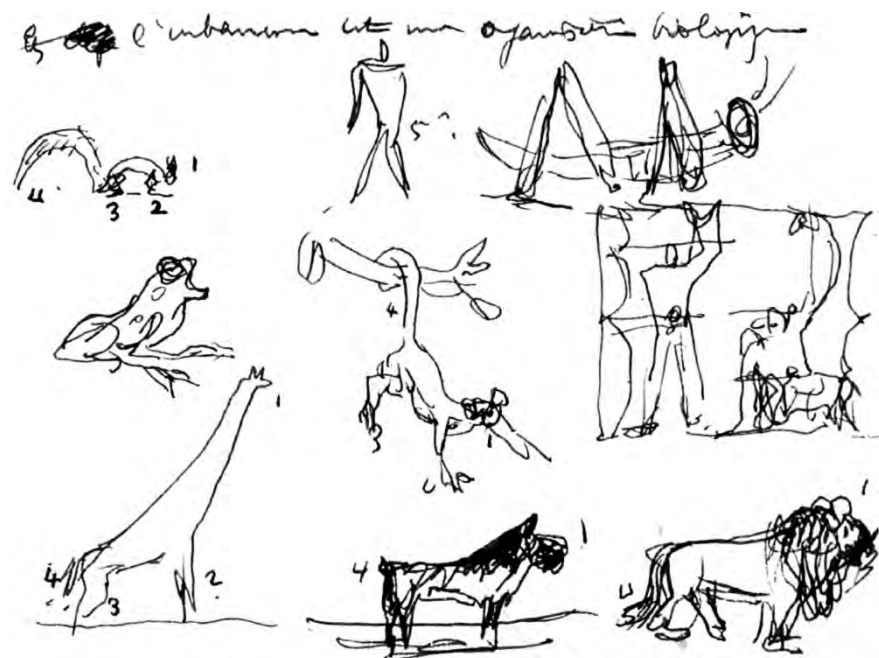 l'urbanisme est une organisation biologique
5
1
4
3 2
4
3
1
1
4
2
3
4 1
1
4